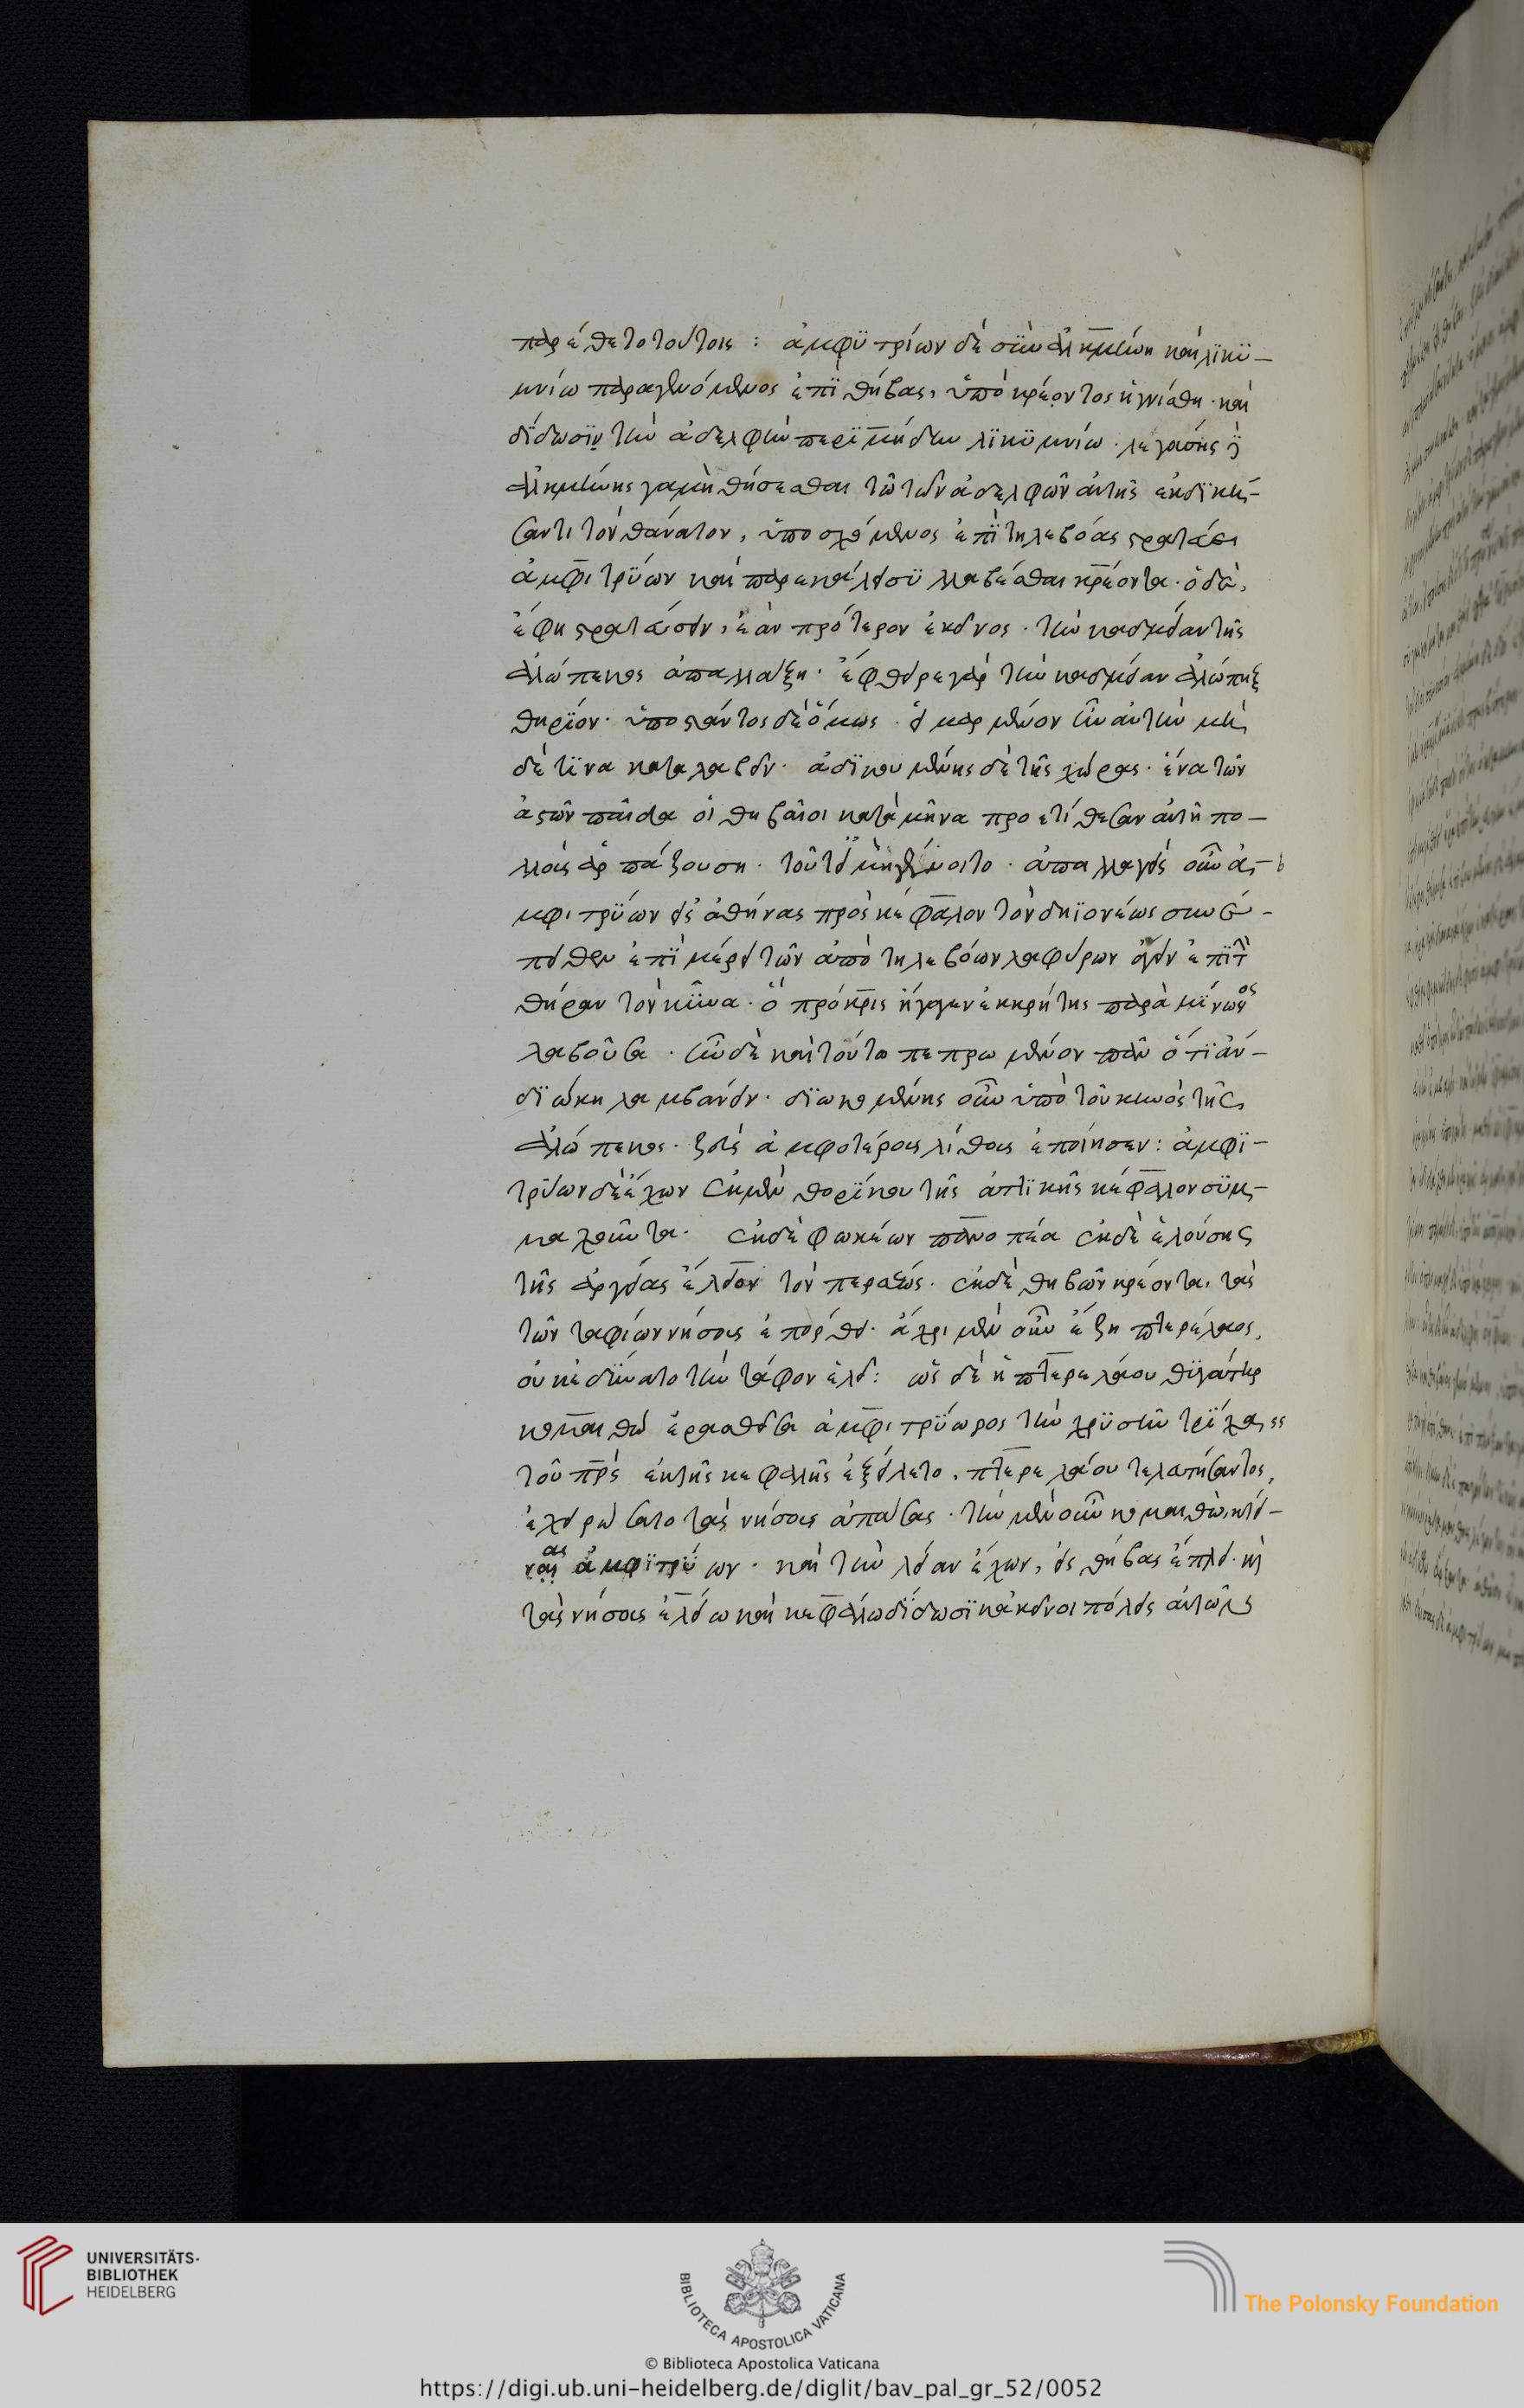 παρέθετο τούτοις : ἀμφϋτρίων δὲ σὺν ἀλκμήνη καὶ λϊκϋ–
μνίω παραγενόμενος ἐπῒ θήβας, ὑπὸ κρέοντος ἡγνίσθη · καὶ
δίδωσϊν τὴν ἀδελφὴν περϊμήδην λϊκϋμνίω · λεγούσης δὲ
ἀλκμήνης γαμηθήσεσθαι τῶ τῶν ἀδελφῶν αὐτῆς ἐκδϊκή–
σαντι τὸν θάνατον, ὑποσχόμενος ἐπῒ τηλεβόας στρατεύει
ἀμφιτρϋων καὶ παρεκάλει συλλαβέσθαι κρέοντα · ὁ δὲ,
ἔφη στρατεύσειν, ἐὰν πρότερον ἐκεῖνος · τὴν καδμείαν τῆς
ἀλώπεκος ἀπαλλάξη · ἔφθειρε γὰρ τὴν καδμείαν ἀλώπηξ
θηρϊον · ὑποστάντος δὲ ὅμως · εἱμαρμένον ἦν αὐτὴν μὴ
δὲ τϊνα καταλαβεῖν · ἀδϊκουμένης δὲ τῆς χώρας · ἕνα τῶν
ἀστῶν παῖδα οἱ θηβαῖοι κατὰ μῆνα προετίθεσαν αὐτῆ πο–
λλοὺς ἁρπάζουση · τοῦτ' εἰ μὴ γένοιτο · ἀπαλλαγεὶς οὖν ἀ–
μφιτρϋων εἰς ἀθήνας πρὸς κέφαλον τὸν δηϊονέως συνέ–
πειθεν ἐπῒ μέρει τῶν ἀπὸ τηλεβόων λαφύρων ἄγειν ἐπῒ τὴν
θήραν τὸν κϋνα · ὃ πρόκρις ἤγαγεν ἐκ κρήτης παρὰ μϊνωος
λαβοῦσα · ἦν δὲ καὶ τούτω πεπρωμένον πᾶν ὅτϊ ἂν–
δϊώκη λαμβάνειν · διωκομένης οὖν ὑπὸ τοῦ κυνὸς τῆς
ἀλώπεκος · ζεὺς ἀμφοτέρους λίθους ἐποίησεν : ἀμφϊ–
τρύων δὲ ἔχων ἐκ μὲν θορϊκου τῆς ἀττϊκῆς κέφαλλον συμ–
μαχοῦντα · ἐκ δὲ φωκέων πανοπέα ἐκ δὲ ἑλούσης
τῆς ἀργείας ἕλειον τὸν περσέως · ἐκ δὲ θηβῶν κρέοντα, τὰς
τῶν ταφίων νήσους ἐπόρθει · ἄχρι μὲν οὖν ἔζη πτερέλαος,
οὐκ ἐδύνατο τὴν τάφον ἑλεῖν : ὡς δὲ ἡ πτερελάου θϋγάτηρ
κομαιθὼ ἐρασθεῖσα ἀμφιτρϋωνος τὴν χρϋσῆν τρϊχα
τοῦ πρς ἐκ τῆς κεφαλῆς ἐξείλετο, πτερελάου τελευτήσαντος,
ἐχειρώσατο τὰς νήσους ἁπάσας · τὴν μὲν οὖν κομαιθὼ κτεί–
νας ἀμφϊτρϋων · καὶ τὴν λείαν ἔχων, εἰς θήβας ἔπλει · καὶ
τὰς νήσους ἑλείω καὶ κεφάλω δϊδωσϊ κἀκεῖνοι πόλεις αὐτῶν
UNIVERSITÄTS-
BIBLIOTHEK
HEIDELBERG
BIBLIOTECA APOSTOLICA VATICANA
The Polonsky Foundation
© Biblioteca Apostolica Vaticana
https://digi.ub.uni-heidelberg.de/diglit/bav_pal_gr_52/0052